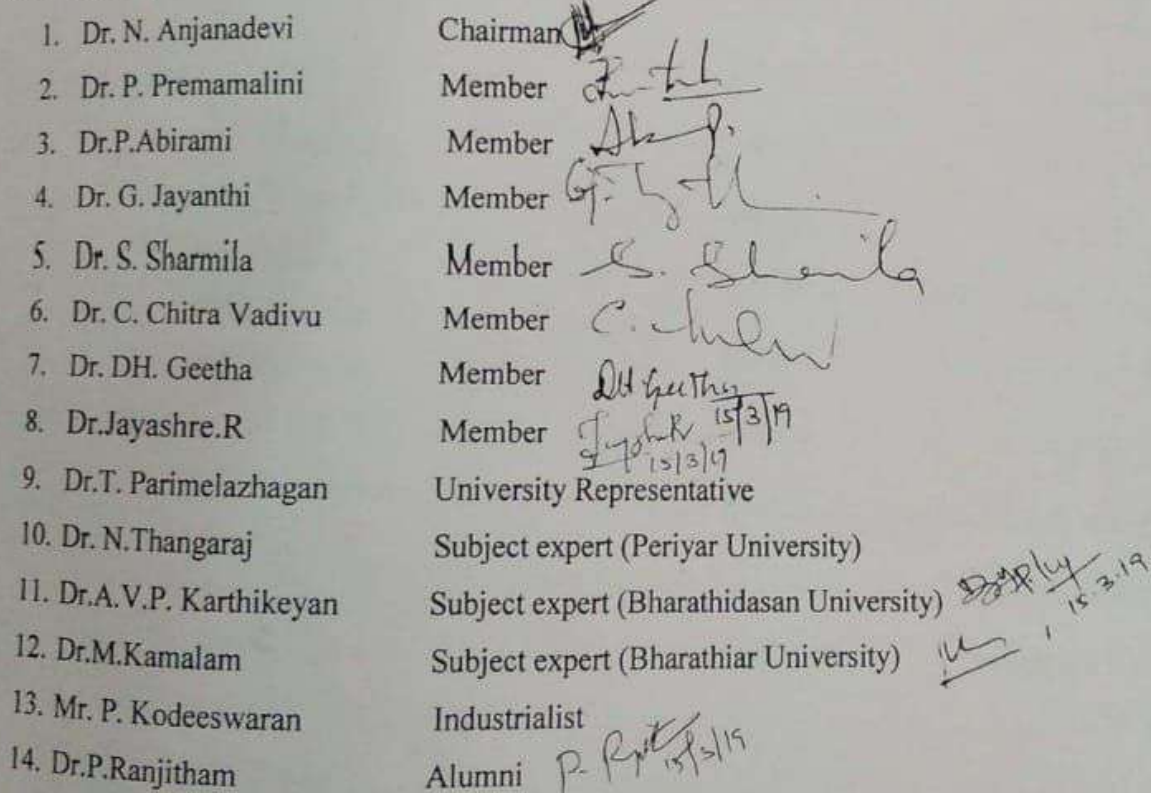 1. Dr. N. Anjanadevi Chairman
2. Dr. P. Premamalini Member
3. Dr.P.Abirami Member
4. Dr. G. Jayanthi Member
5. Dr. S. Sharmila Member S. Sharmila
6. Dr. C. Chitra Vadivu Member
7. Dr. DH. Geetha Member DH Geetha 15/3/19
8. Dr.Jayashre.R Member 15/3/19
9. Dr.T. Parimelazhagan University Representative
10. Dr. N.Thangaraj Subject expert (Periyar University)
11. Dr.A.V.P. Karthikeyan Subject expert (Bharathidasan University) 15.3.19
12. Dr.M.Kamalam Subject expert (Bharathiar University)
13. Mr. P. Kodeeswaran Industrialist
14. Dr.P.Ranjitham Alumni 15/3/19